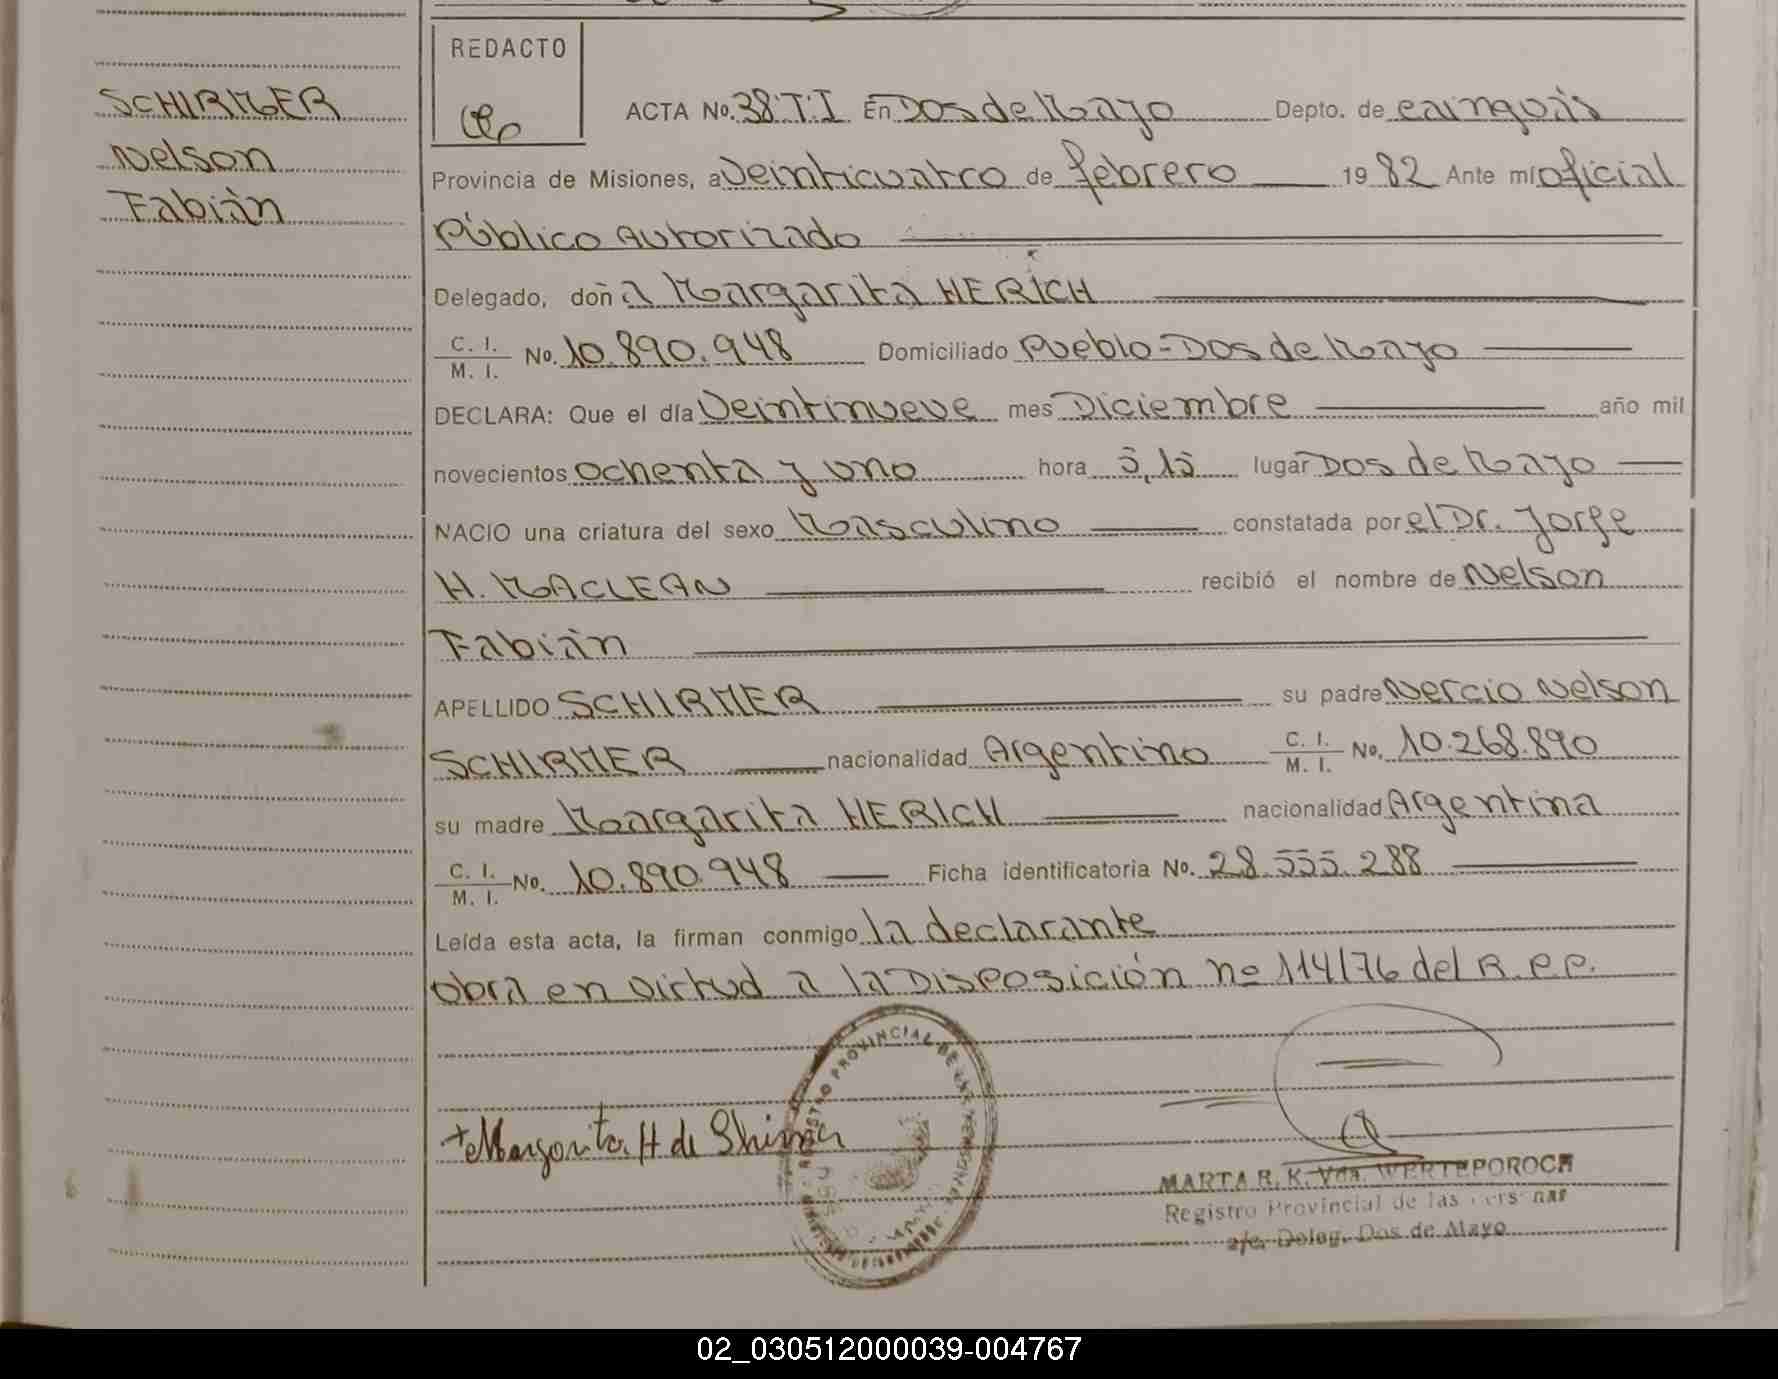 SCHIRMER
Nelson
Fabián
REDACTO
ACTA No. 38 T:I En Dos de Mayo Depto. de cainguás
Provincia de Misiones, a Veinticuatro de febrero 19 82 Ante mí oficial
Público Autorizado
Delegado, doña Margarita HERICH
C. I. / M. I. No. 10.890.948 Domiciliado Pueblo-Dos de Mayo
DECLARA: Que el día Veintinueve mes Diciembre año mil
novecientos ochenta y uno hora 5,15 lugar Dos de Mayo
NACIO una criatura del sexo Masculino constatada por el Dr. Jorge
H. MACLEAN recibió el nombre de Nelson
Fabián
APELLIDO SCHIRMER su padre Nercio Nelson
SCHIRMER nacionalidad Argentino C. I. / M. I. No. 10.268.890
su madre Margarita HERICH nacionalidad Argentina
C. I. / M. I. No. 10.890.948 Ficha identificatoria No. 28.555.288
Leída esta acta, la firman conmigo la declarante
obra en virtud a la Disposición nº 114/76 del R.P.P.
+ Margarita H de Shirmer
REGISTRO PROVINCIAL DE LAS PERSONAS
MARTA R. K. Vda. WERTEPOROCH
Registro Provincial de las Personas
a/c. Deleg. Dos de Mayo
02_030512000039-004767